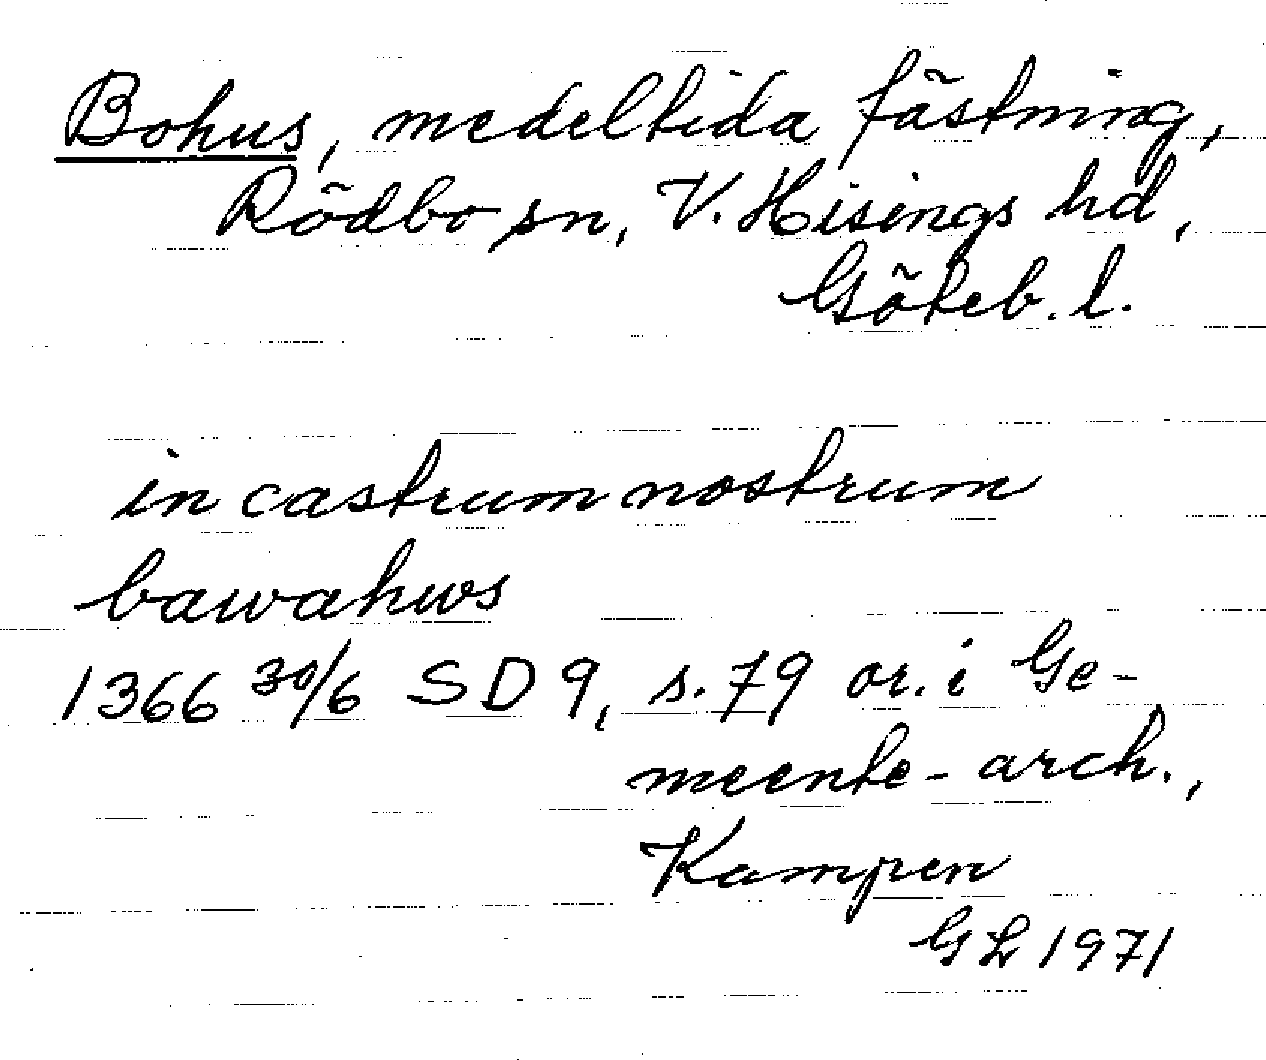 Bohus, medeltida fästning,
Rödbo sn, V. Hisings hd,
Göteb. l.
in castrum nostrum
bawahws
1366 30/6 SD 9, s. 79 or. i Ge-
meente-arch.,
Kampen
GL 1971